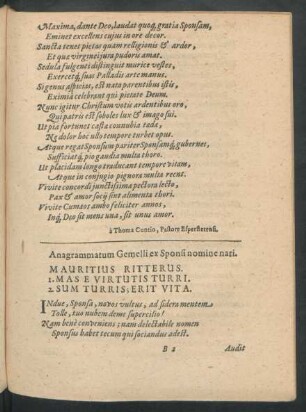 Maxima, dante Deo, laudat quoq; gratia Sponsam,
Eminet excellens cujus in ore decor.
Sancta tenet pietas quam relligionis & ardor,
Et quæ virgineijura pudoris amat.
Sedula fulgenti distinguit murice vestes,
Exercetq; suas Palladis arte manus.
Si genus aspicias, est nata parentibus istis,
Eximiè celebrant qui pietate Deum.
Nunc igitur Christum votis ardentibus oro,
Qui patris est soboles lux & imago sui.
Ut pia fortunet casta connubia tæda,
Ne dolor hoc ullo tempore turbet opus.
Atque regat Sponsum pariter Sponsamq; gubernet,
Sufficiatq; pio gaudia multa thoro.
Ut placidam longo traducant tempore vitam,
Atque in conjugio pignora multa creent.
Vivite concordi junctissima pectora lecto,
Pax & amor socij sint alimenta thori.
Vivite Cumæos ambo feliciter annos,
Inq; Deo sit mens una, sit unus amor.
à Thoma Cuntio, Pastore Elperstetensi.
Anagrammatum Gemelli ex Sponsi nomine nati.
MAURITIUS RITTERUS.
1. MAS E VIRTUTIS TURRI.
2. SUM TURRIS; ERIT VITA.
INdue, Sponsa, novos vultus, ad sidera mentem
Tolle, tuo nubem deme supercilio!
Nam benè conveniens; nam delectabile nomen
Sponsus habet tecum qui sociandus adest.
B 2
Audit